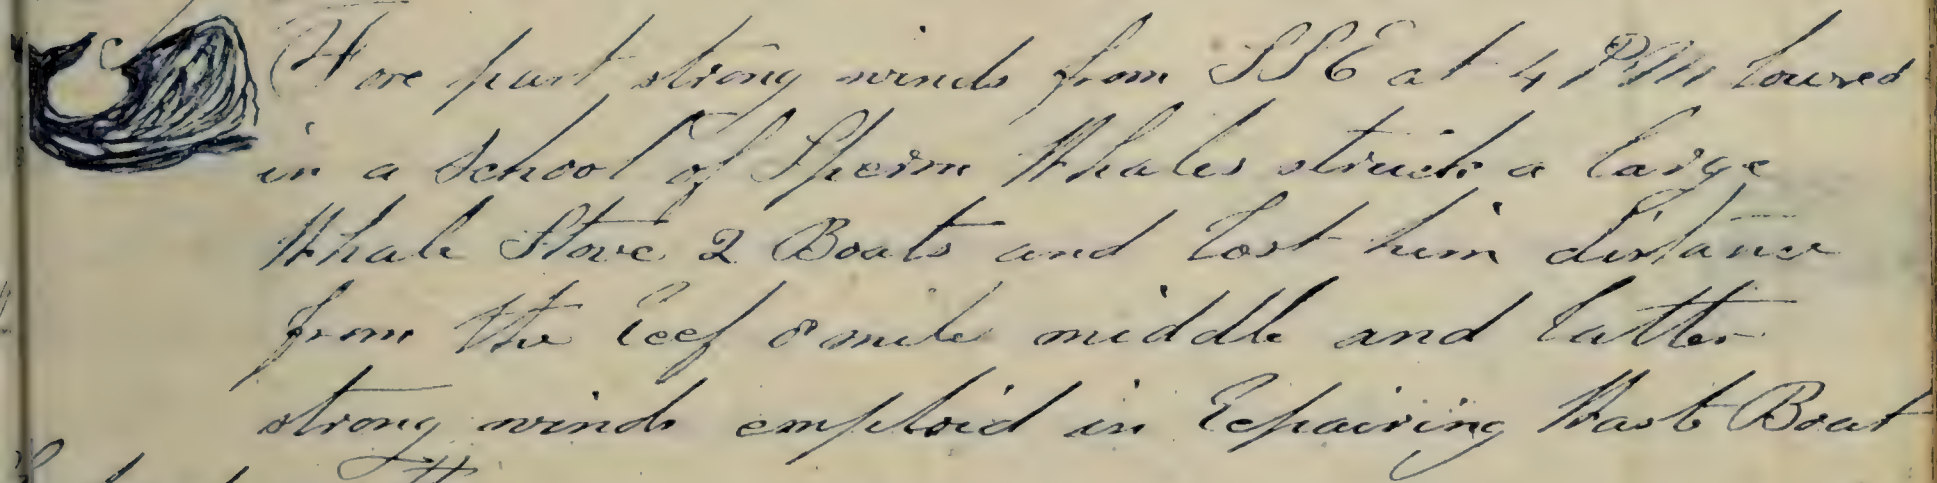 Fore part strong winds from SSE at 4 PM lowred
in a School of Sperm Whales struck a large
Whale Stove 2 Boats and lost him distance
from the reef 8 mile middle and latter
strong winds emploid in repairing Wast Boat